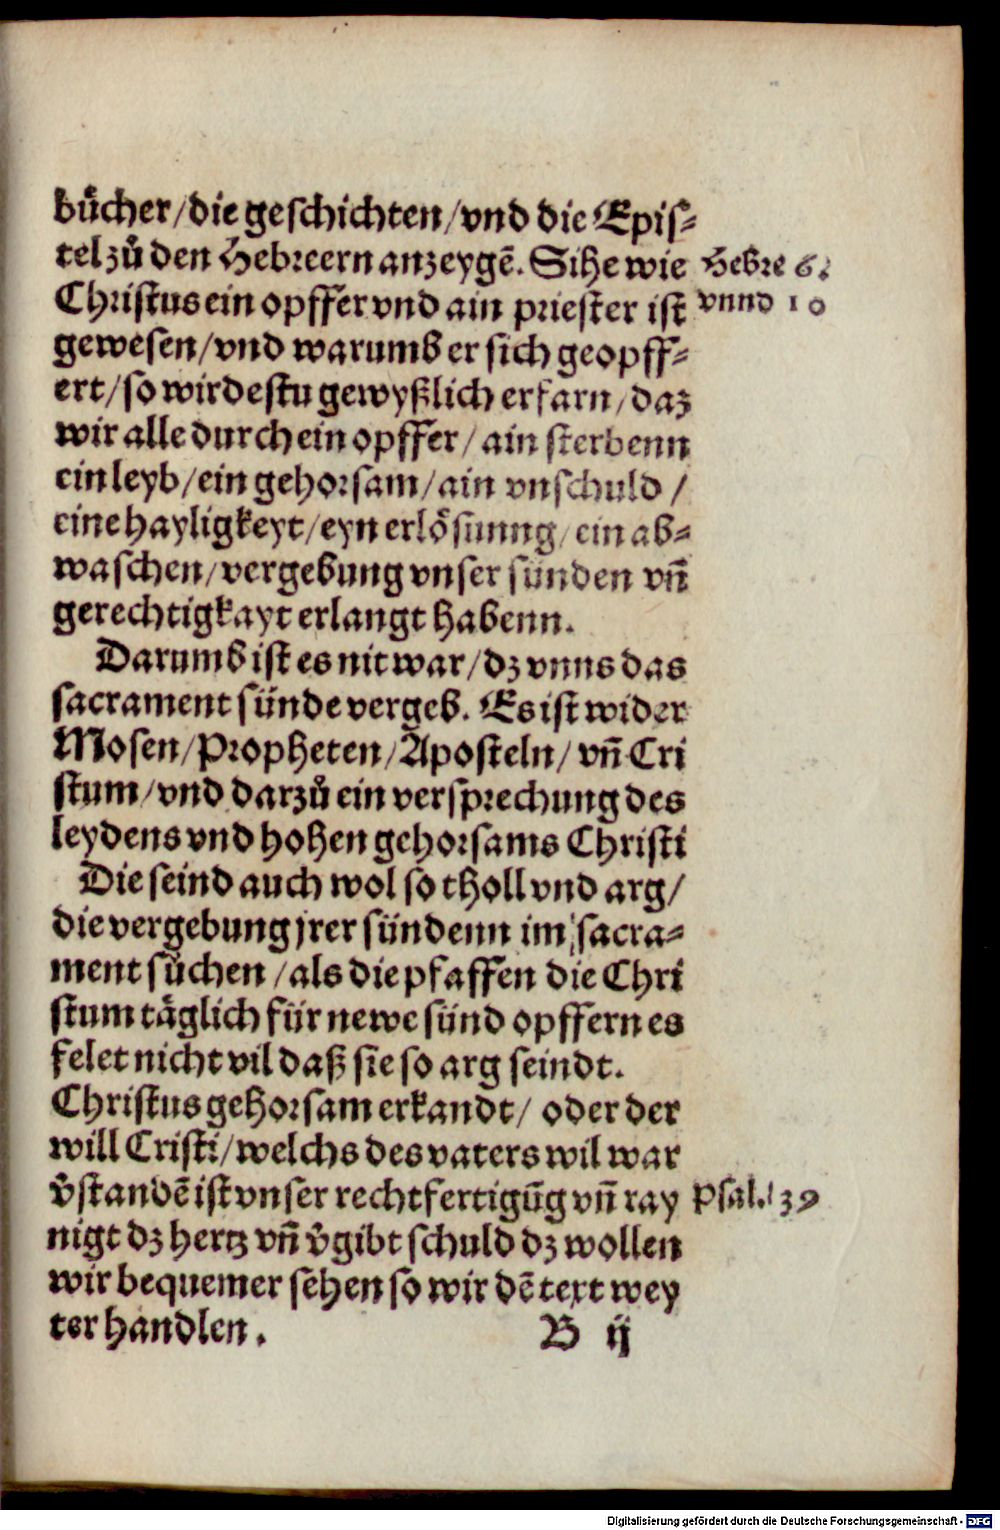 bůcher/die geschichten/vnd die Epis⸗
tel zů den Hebreern anzeygē. Sihe wie
Hebre 6.
Christus ein opffer vnd ain priester ist
vnnd 10
gewesen/vnd warumb er sich geopff⸗
ert/so wirdestu gewyßlich erfarn/daz
wir alle durch ein opffer/ain sterbenn
ein leyb/ein gehorsam/ain vnschuld/
eine hayligkeyt/eyn erlösunng/ein ab⸗
waschen/vergebung vnser sünden vn̄
gerechtigkayt erlangt habenn.
Darumb ist es nit war/dz vnns das
sacrament sünde vergeb. Es ist wider
Mosen/Propheten/Aposteln/vn̄ Cri
stum/vnd darzů ein versprechung des
leydens vnd hohen gehorsams Christi
Die seind auch wol so tholl vnd arg/
die vergebung jrer sündenn im sacra⸗
ment sůchen/als die pfaffen die Chri
stum täglich für newe sünd opffern es
felet nicht vil daß sie so arg seindt.
Christus gehorsam erkandt/oder der
will Cristi/welchs des vaters wil war
v̊standē ist vnser rechtfertigūg vn̄ ray
Psal. 39
nigt dz hertz vn̄ v̊gibt schuld dz wollen
wir bequemer sehen so wir dē text wey
ter handlen.
B ij
Digitalisierung gefördert durch die Deutsche Forschungsgemeinschaft - DFG